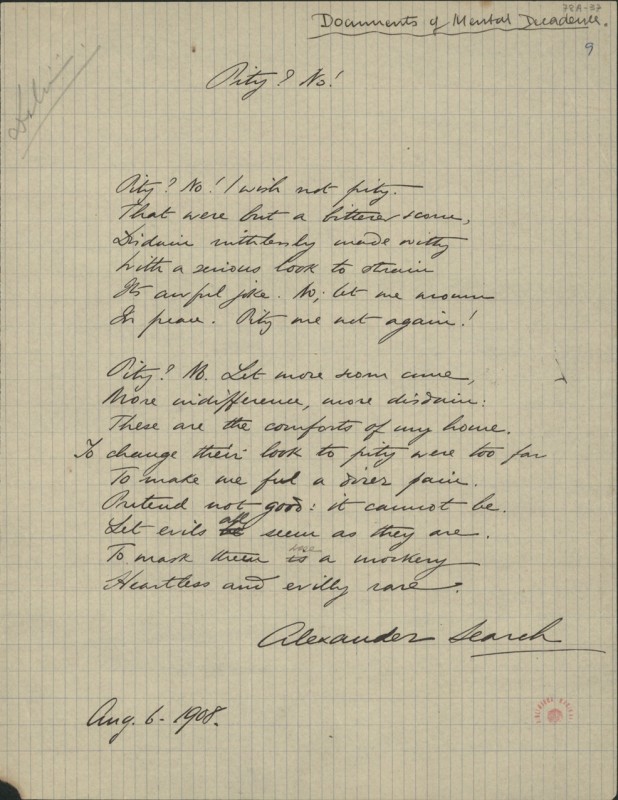 78A-37
Documents of Mental Decadence.
9
Pity? No!
Pity? No! I wish not pity.
That were but a bitterer scorn,
Disdain ruthlessly made witty
With a serious look to strain
Its awful joke. No; let me mourn
In peace. Pity me not again!
Pity? No. Let more scorn come,
More indifference, more disdain:
These are the comforts of my home.
To change their look to pity were too far
To make me feel a direr pain.
Pretend not good: it cannot be.
Let evils all seem as they are.
To mask them is were a mockery
Heartless and evilly rare.
Alexander Search
Aug. 6. 1908.